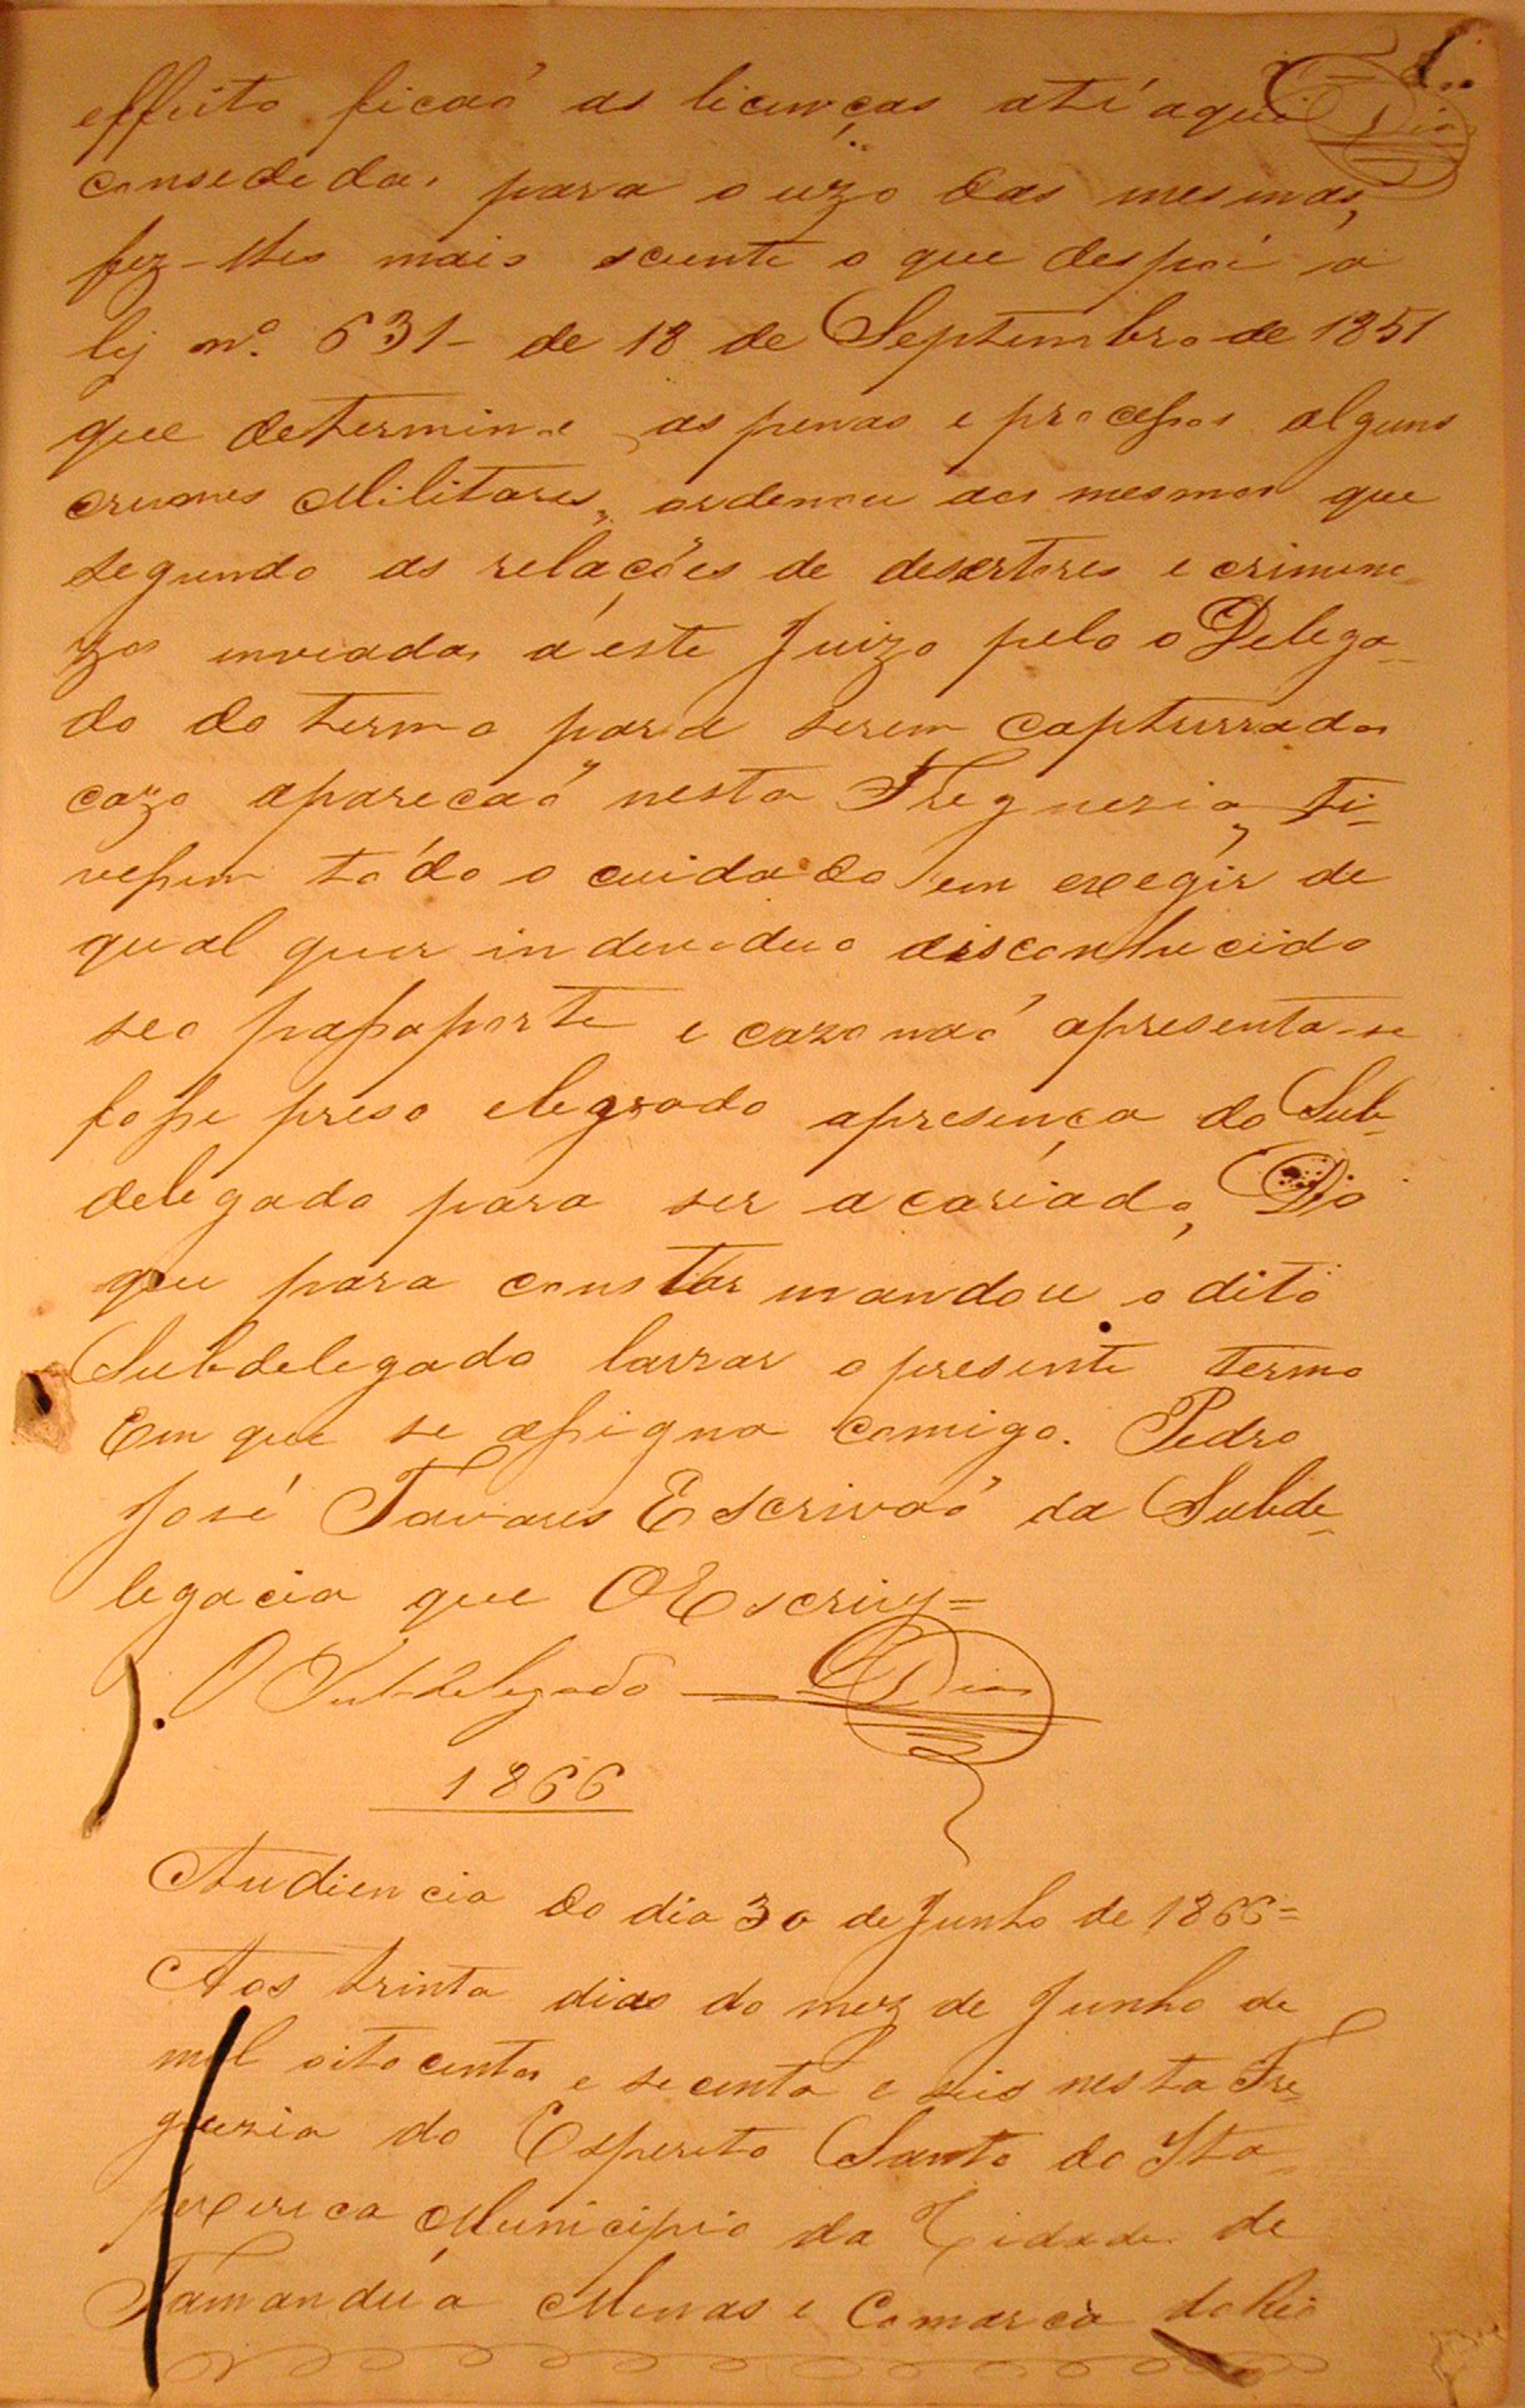 Dias
effeito ficaõ as licenças até aqui
consededas para o uzo das mesmas,
fez-lhes mais sciente o que despoi a
lej nº. 631- de 18 de Septembro de 1851
que determina as penas e processos alguns
crimes Militares, ordenou aos mesmos que
segundo as relações de desertores e crimino
zos inviadas á este Juizo pelo o Delega-
do do termo para serem capturrados
cazo apareçaõ nesta Freguezia, ti-
vessem tódo o cuidado em exegir de
qual quer indeveduo disconhecido
seo passaporte e cazo naõ apresenta-se
fosse preso elegrado apresença do Sub-
delegado para ser acariado, Do
que para constar mandou o dito
Subdelegado lavrar o presente termo
Em que se assigna comigo. Pedro
José Tavares Escrivaõ da Subde-
legacia que O Escrivy=
O Subdelegado Dias
1866
Audiencia do dia 30 de Junho de 1866=
Aos trinta dias do mez de Junho de
mil oitocentos e secenta e seis nesta Fre-
guezia do Espereto Santo do Ita-
pexerica Municipio da Cidade de
Tamanduá Minas e Comarca do Rio